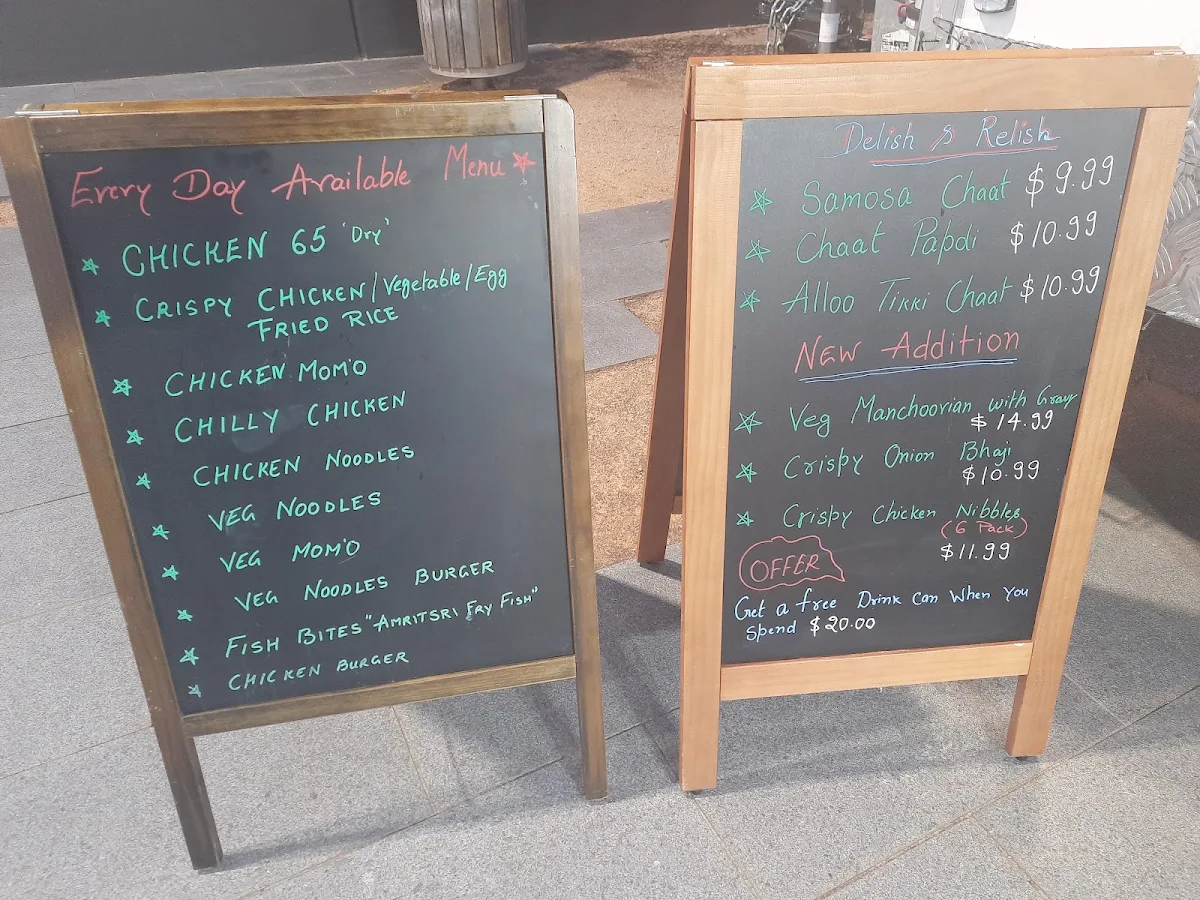 Every Day Available Menu
CHICKEN 65 'Dry'
CRISPY CHICKEN/Vegetable/Egg
FRIED RICE
CHICKEN MOM'O
CHILLY CHICKEN
CHICKEN NOODLES
VEG NOODLES
VEG MOM'O
VEG NOODLES BURGER
FISH BITES "AMRITSRI FRY FISH"
CHICKEN BURGER
Delish & Relish
Samosa Chaat $9.99
Chaat Papdi $10.99
Alloo Tikki Chaat $10.99
New Addition
Veg Manchoorian with Gravy
$14.99
Crispy Onion Bhaji
$10.99
Crispy Chicken Nibbles
(6 Pack)
$11.99
OFFER
Get a free Drink Can When You
Spend $20.00